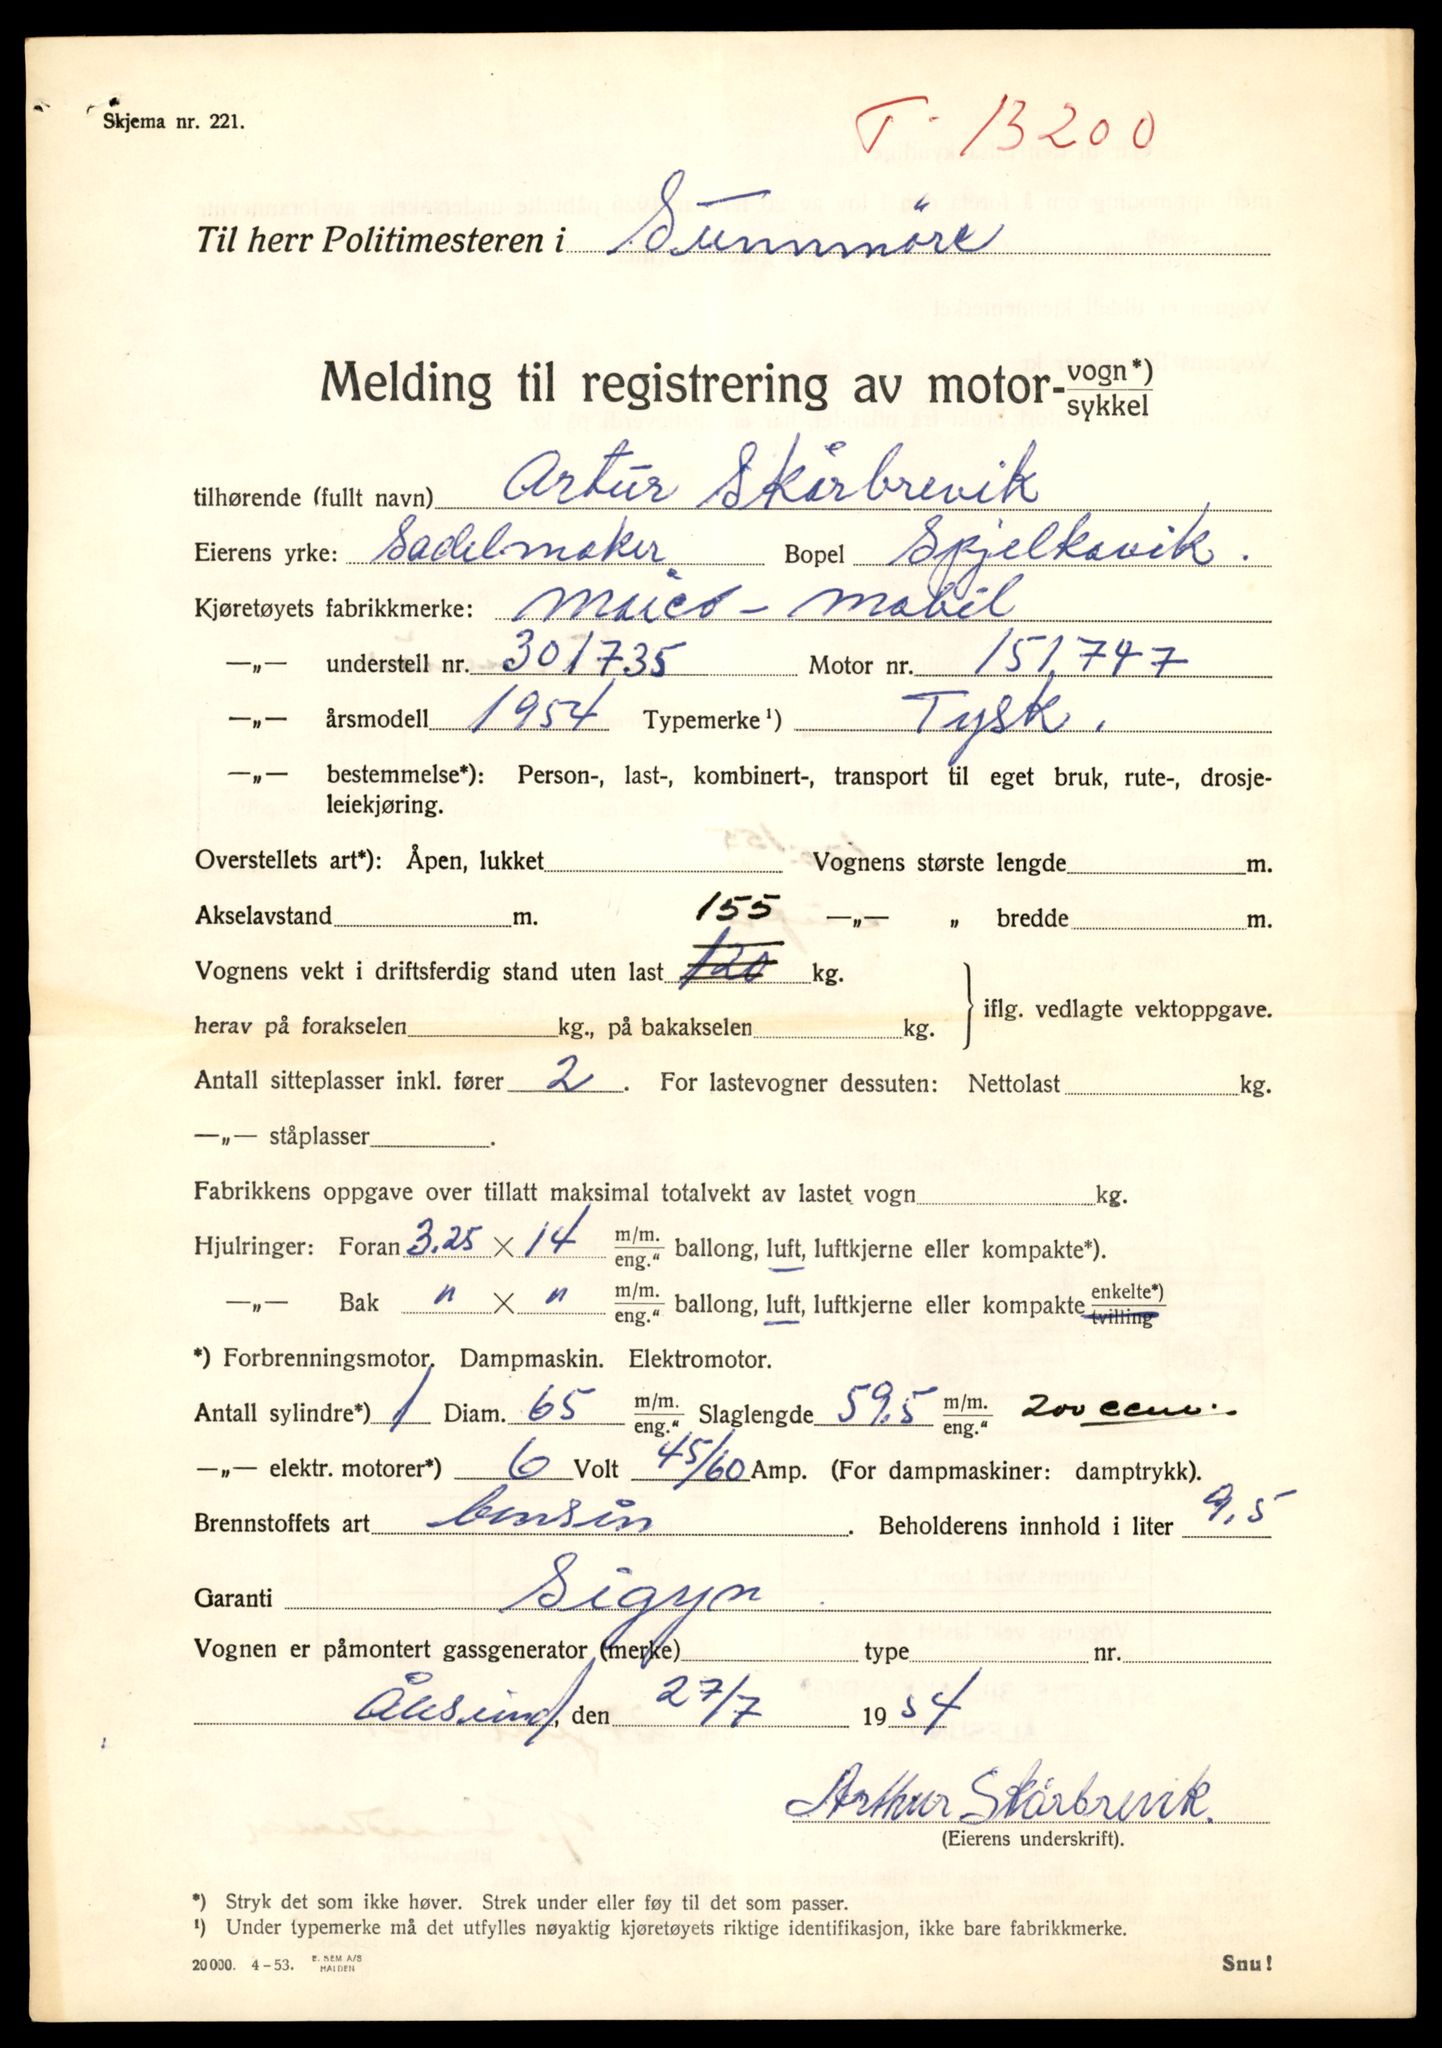 Skjema nr. 221.
T - 13200
Til herr Politimesteren i Sunnmöre
Melding til registrering av motor- vogn*) sykkel
tilhørende (fullt navn) Artur Skårbrevik
Eierens yrke: Sadelmaker Bopel Spjelkavik.
Kjøretøyets fabrikkmerke: Maico - mobil
—„— understell nr. 301735 Motor nr. 151747
—„— årsmodell 1954 Typemerke ¹) Tysk.
—„— bestemmelse*): Person-, last-, kombinert-, transport til eget bruk, rute-, drosje-
leiekjøring.
Overstellets art*): Åpen, lukket Vognens største lengde m.
Akselavstand m. 155 —„— „ bredde m.
Vognens vekt i driftsferdig stand uten last 120 kg.
herav på forakselen kg., på bakakselen kg. iflg. vedlagte vektoppgave.
Antall sitteplasser inkl. fører 2. For lastevogner dessuten: Nettolast kg.
—„— ståplasser .
Fabrikkens oppgave over tillatt maksimal totalvekt av lastet vogn kg.
Hjulringer: Foran 3.25 × 14 m/m. eng.“ ballong, luft, luftkjerne eller kompakte*).
—„— Bak " × " m/m. eng.“ ballong, luft, luftkjerne eller kompakte enkelte*) tvilling
*) Forbrenningsmotor. Dampmaskin. Elektromotor.
Antall sylindre*) 1 Diam. 65 m/m. eng.“ Slaglengde 59,5 m/m. eng.“ 200 ccm.
—„— elektr. motorer*) 6 Volt 45/60 Amp. (For dampmaskiner: damptrykk).
Brennstoffets art bensin. Beholderens innhold i liter 9,5
Garanti Sigyn
Vognen er påmontert gassgenerator (merke) type nr.
Ålesund, den 27/7 1954
Arthur Skårbrevik.
(Eierens underskrift).
*) Stryk det som ikke høver. Strek under eller føy til det som passer.
¹) Under typemerke må det utfylles nøyaktig kjøretøyets riktige identifikasjon, ikke bare fabrikkmerke.
20000. 4-53. E. SEM A/S HALDEN Snu!